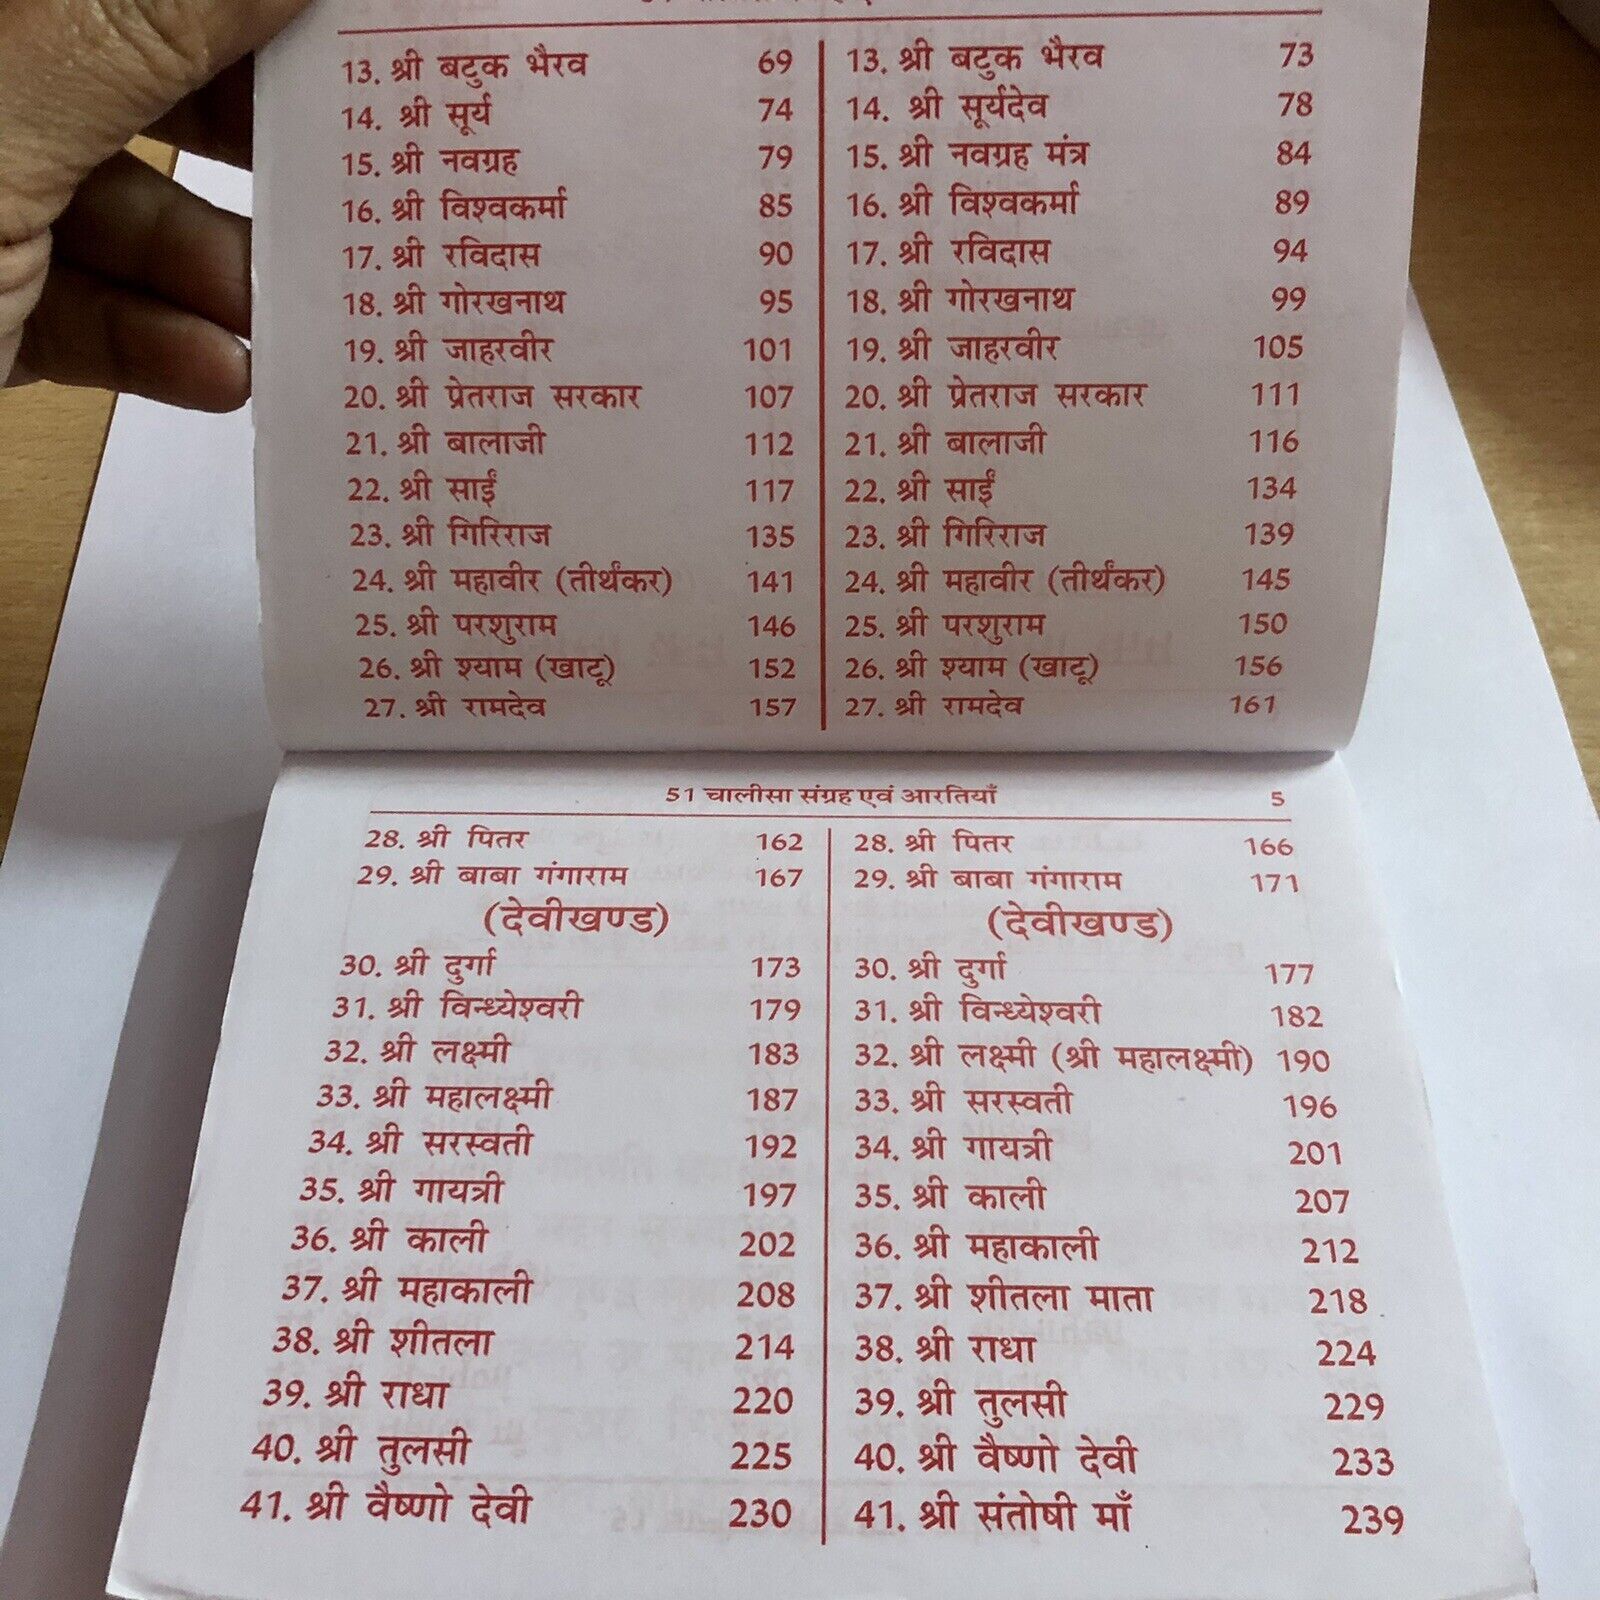 13. श्री बटुक भैरव 69 13. श्री बटुक भैरव 73
14. श्री सूर्य 74 14. श्री सूर्यदेव 78
15. श्री नवग्रह 79 15. श्री नवग्रह मंत्र 84
16. श्री विश्वकर्मा 85 16. श्री विश्वकर्मा 89
17. श्री रविदास 90 17. श्री रविदास 94
18. श्री गोरखनाथ 95 18. श्री गोरखनाथ 99
19. श्री जाहरवीर 101 19. श्री जाहरवीर 105
20. श्री प्रेतराज सरकार 107 20. श्री प्रेतराज सरकार 111
21. श्री बालाजी 112 21. श्री बालाजी 116
22. श्री साईं 117 22. श्री साईं 134
23. श्री गिरिराज 135 23. श्री गिरिराज 139
24. श्री महावीर (तीर्थंकर) 141 24. श्री महावीर (तीर्थंकर) 145
25. श्री परशुराम 146 25. श्री परशुराम 150
26. श्री श्याम (खाटू) 152 26. श्री श्याम (खाटू) 156
27. श्री रामदेव 157 27. श्री रामदेव 161
51 चालीसा संग्रह एवं आरतियाँ 5
28. श्री पितर 162 28. श्री पितर 166
29. श्री बाबा गंगाराम 167 29. श्री बाबा गंगाराम 171
(देवीखण्ड) (देवीखण्ड)
30. श्री दुर्गा 173 30. श्री दुर्गा 177
31. श्री विन्ध्येश्वरी 179 31. श्री विन्ध्येश्वरी 182
32. श्री लक्ष्मी 183 32. श्री लक्ष्मी (श्री महालक्ष्मी) 190
33. श्री महालक्ष्मी 187 33. श्री सरस्वती 196
34. श्री सरस्वती 192 34. श्री गायत्री 201
35. श्री गायत्री 197 35. श्री काली 207
36. श्री काली 202 36. श्री महाकाली 212
37. श्री महाकाली 208 37. श्री शीतला माता 218
38. श्री शीतला 214 38. श्री राधा 224
39. श्री राधा 220 39. श्री तुलसी 229
40. श्री तुलसी 225 40. श्री वैष्णो देवी 233
41. श्री वैष्णो देवी 230 41. श्री संतोषी माँ 239